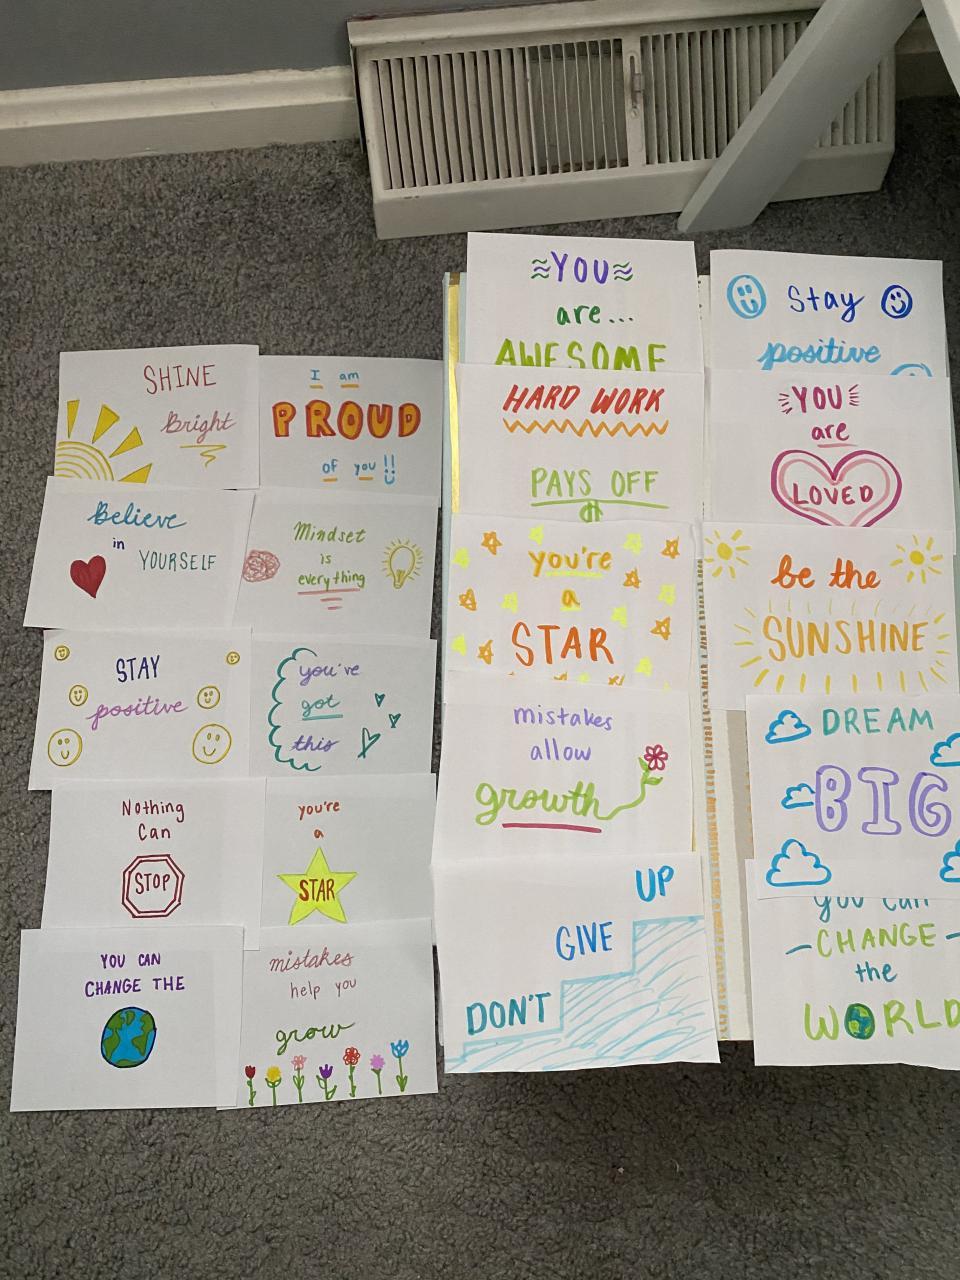 SHINE
Bright
I am
PROUD
of you!!
Believe
in
YOURSELF
Mindset
is
everything
STAY
positive
you've
got
this
Nothing
Can
STOP
you're
a
STAR
YOU CAN
CHANGE THE
mistakes
help you
grow
YOU
are...
AWESOME
Stay
positive
HARD WORK
PAYS OFF
YOU
are
LOVED
you're
a
STAR
be the
SUNSHINE
mistakes
allow
growth
DREAM
BIG
UP
GIVE
DON'T
you can
CHANGE
the
WORLD